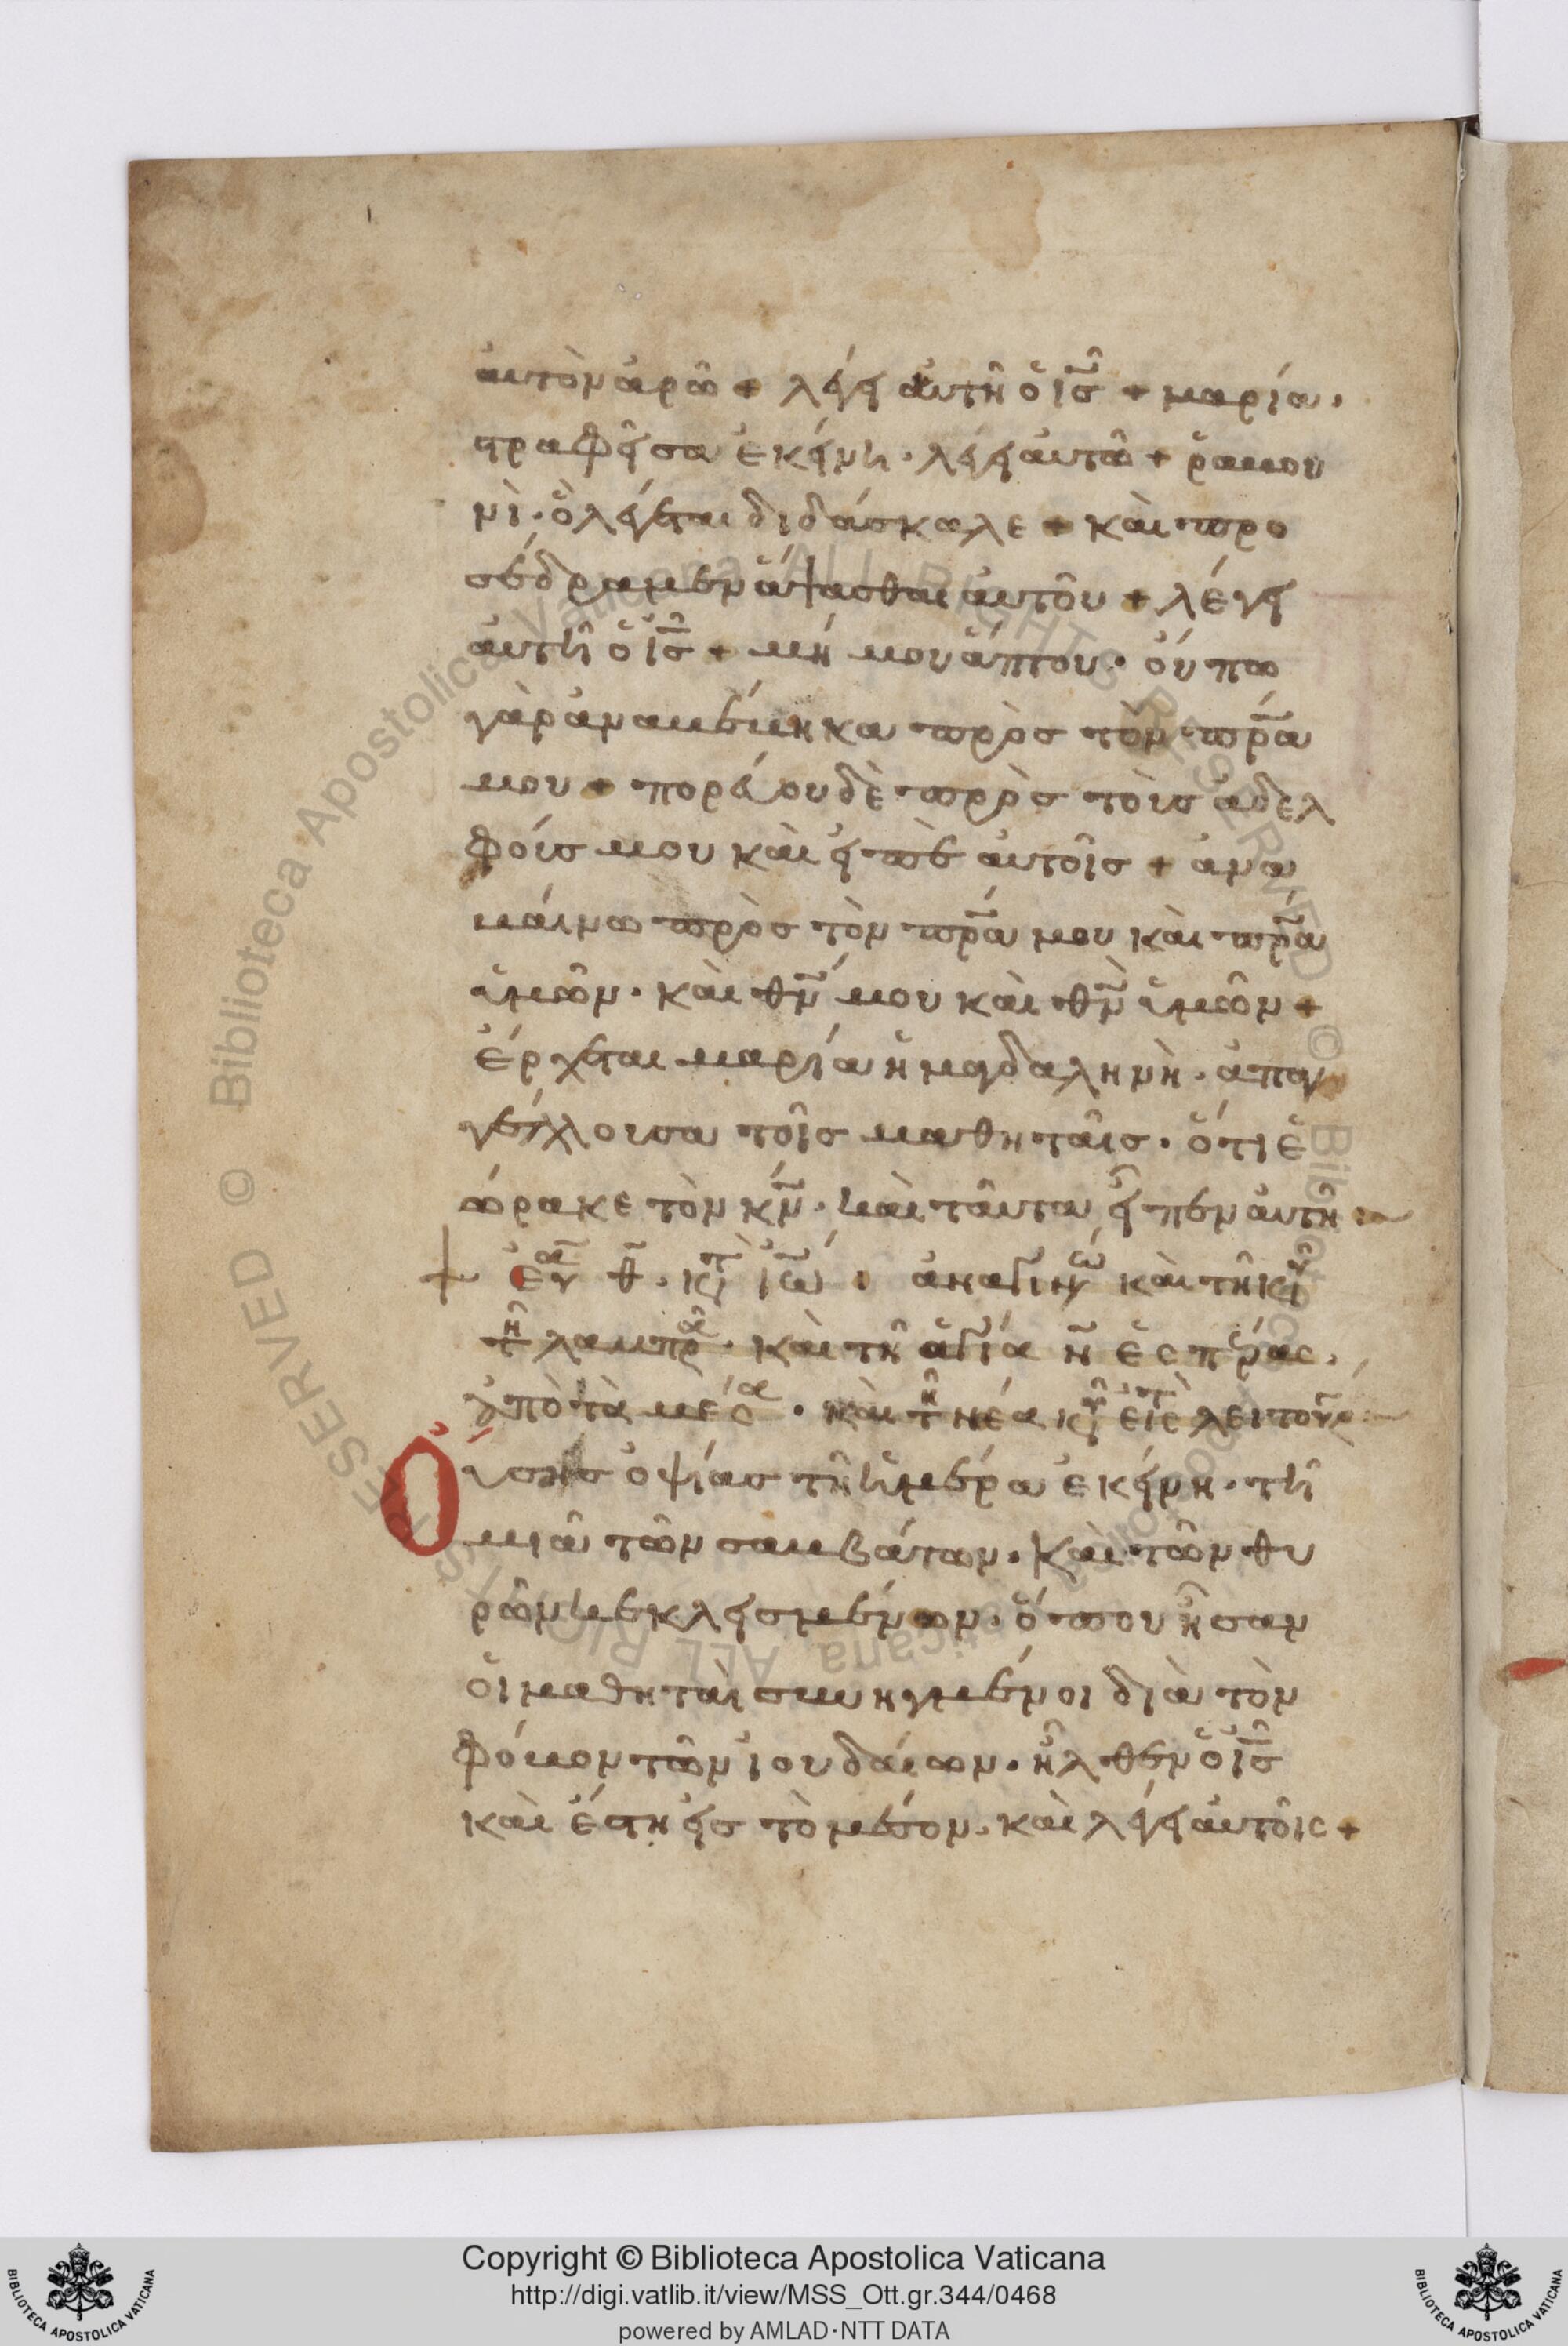 αυτὸν ἀρῶ + λέγει αὐτῆ ὁ ις̅ + μαρία·
στραφεῖσα ἐκείνη· λέγει αυτῶ + ῥαβου
νὶ· ὃ λέγεται διδάσκαλε + καὶ προ
σέδραμεν ἅψασθαι αὐτοῦ + λέγει
αὐτῆ ὁ ις̅ + μή μου ἅπτου· οὔπω
γὰρ ἀναβέβηκα πρὸς τὸν πρ̅α
μου + πορεύου δὲ πρὸς τοὺς ἀδελ
φούς μου καὶ εἰπὲ αὐτοῖς + ἀνα
βαίνω πρὸς τὸν πρ̅α μου καὶ πρ̅α
ὑμῶν· καὶ θν̅ μου καὶ θν̅ ὑμῶν +
ἔρχεται μαρία ἡ μαγδαληνὴ· ἀπαγ
γέλλουσα τοῖς μαθηταῖς· ὅτι ἑ
ώρακε τὸν κν̅· καὶ ταῦτα εἶπεν αυτῆ
λαμπρ· καὶ τῆ ἁγία ν̅ ἑσπέρας·
Οὔσης ὀψίας τῆ ἡμέρα ἐκείνη· τῆ
μιᾶ τῶν σαββάτων· καὶ τῶν θυ
ρῶν κεκλεισμένων· ὅπου ἦσαν
οἱ μαθηταὶ συνηγμένοι διὰ τὸν
φόβον τῶν ἰουδαίων· ἦλθεν ὁ ις̅
καὶ ἔστη εἰς τὸ μέσον· καὶ λέγει αὐτοῖς +
Copyright © Biblioteca Apostolica Vaticana
http://digi.vatlib.it/view/MSS_Ott.gr.344/0468
powered by AMLAD·NTT DATA
BIBLIOTECA APOSTOLICA VATICANA
BIBLIOTECA APOSTOLICA VATICANA